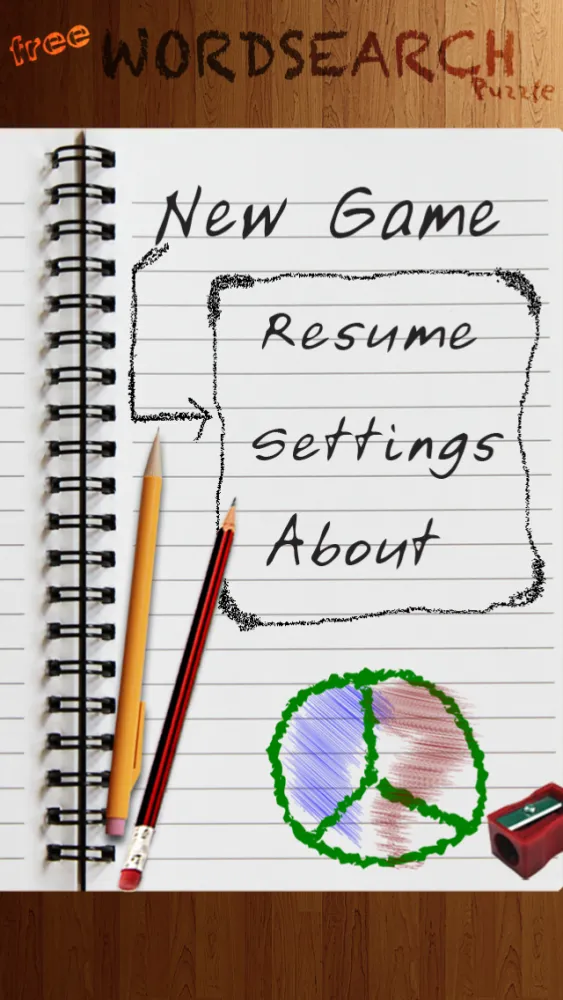 free WORDSEARCH
Puzzle
New Game
Resume
Settings
About